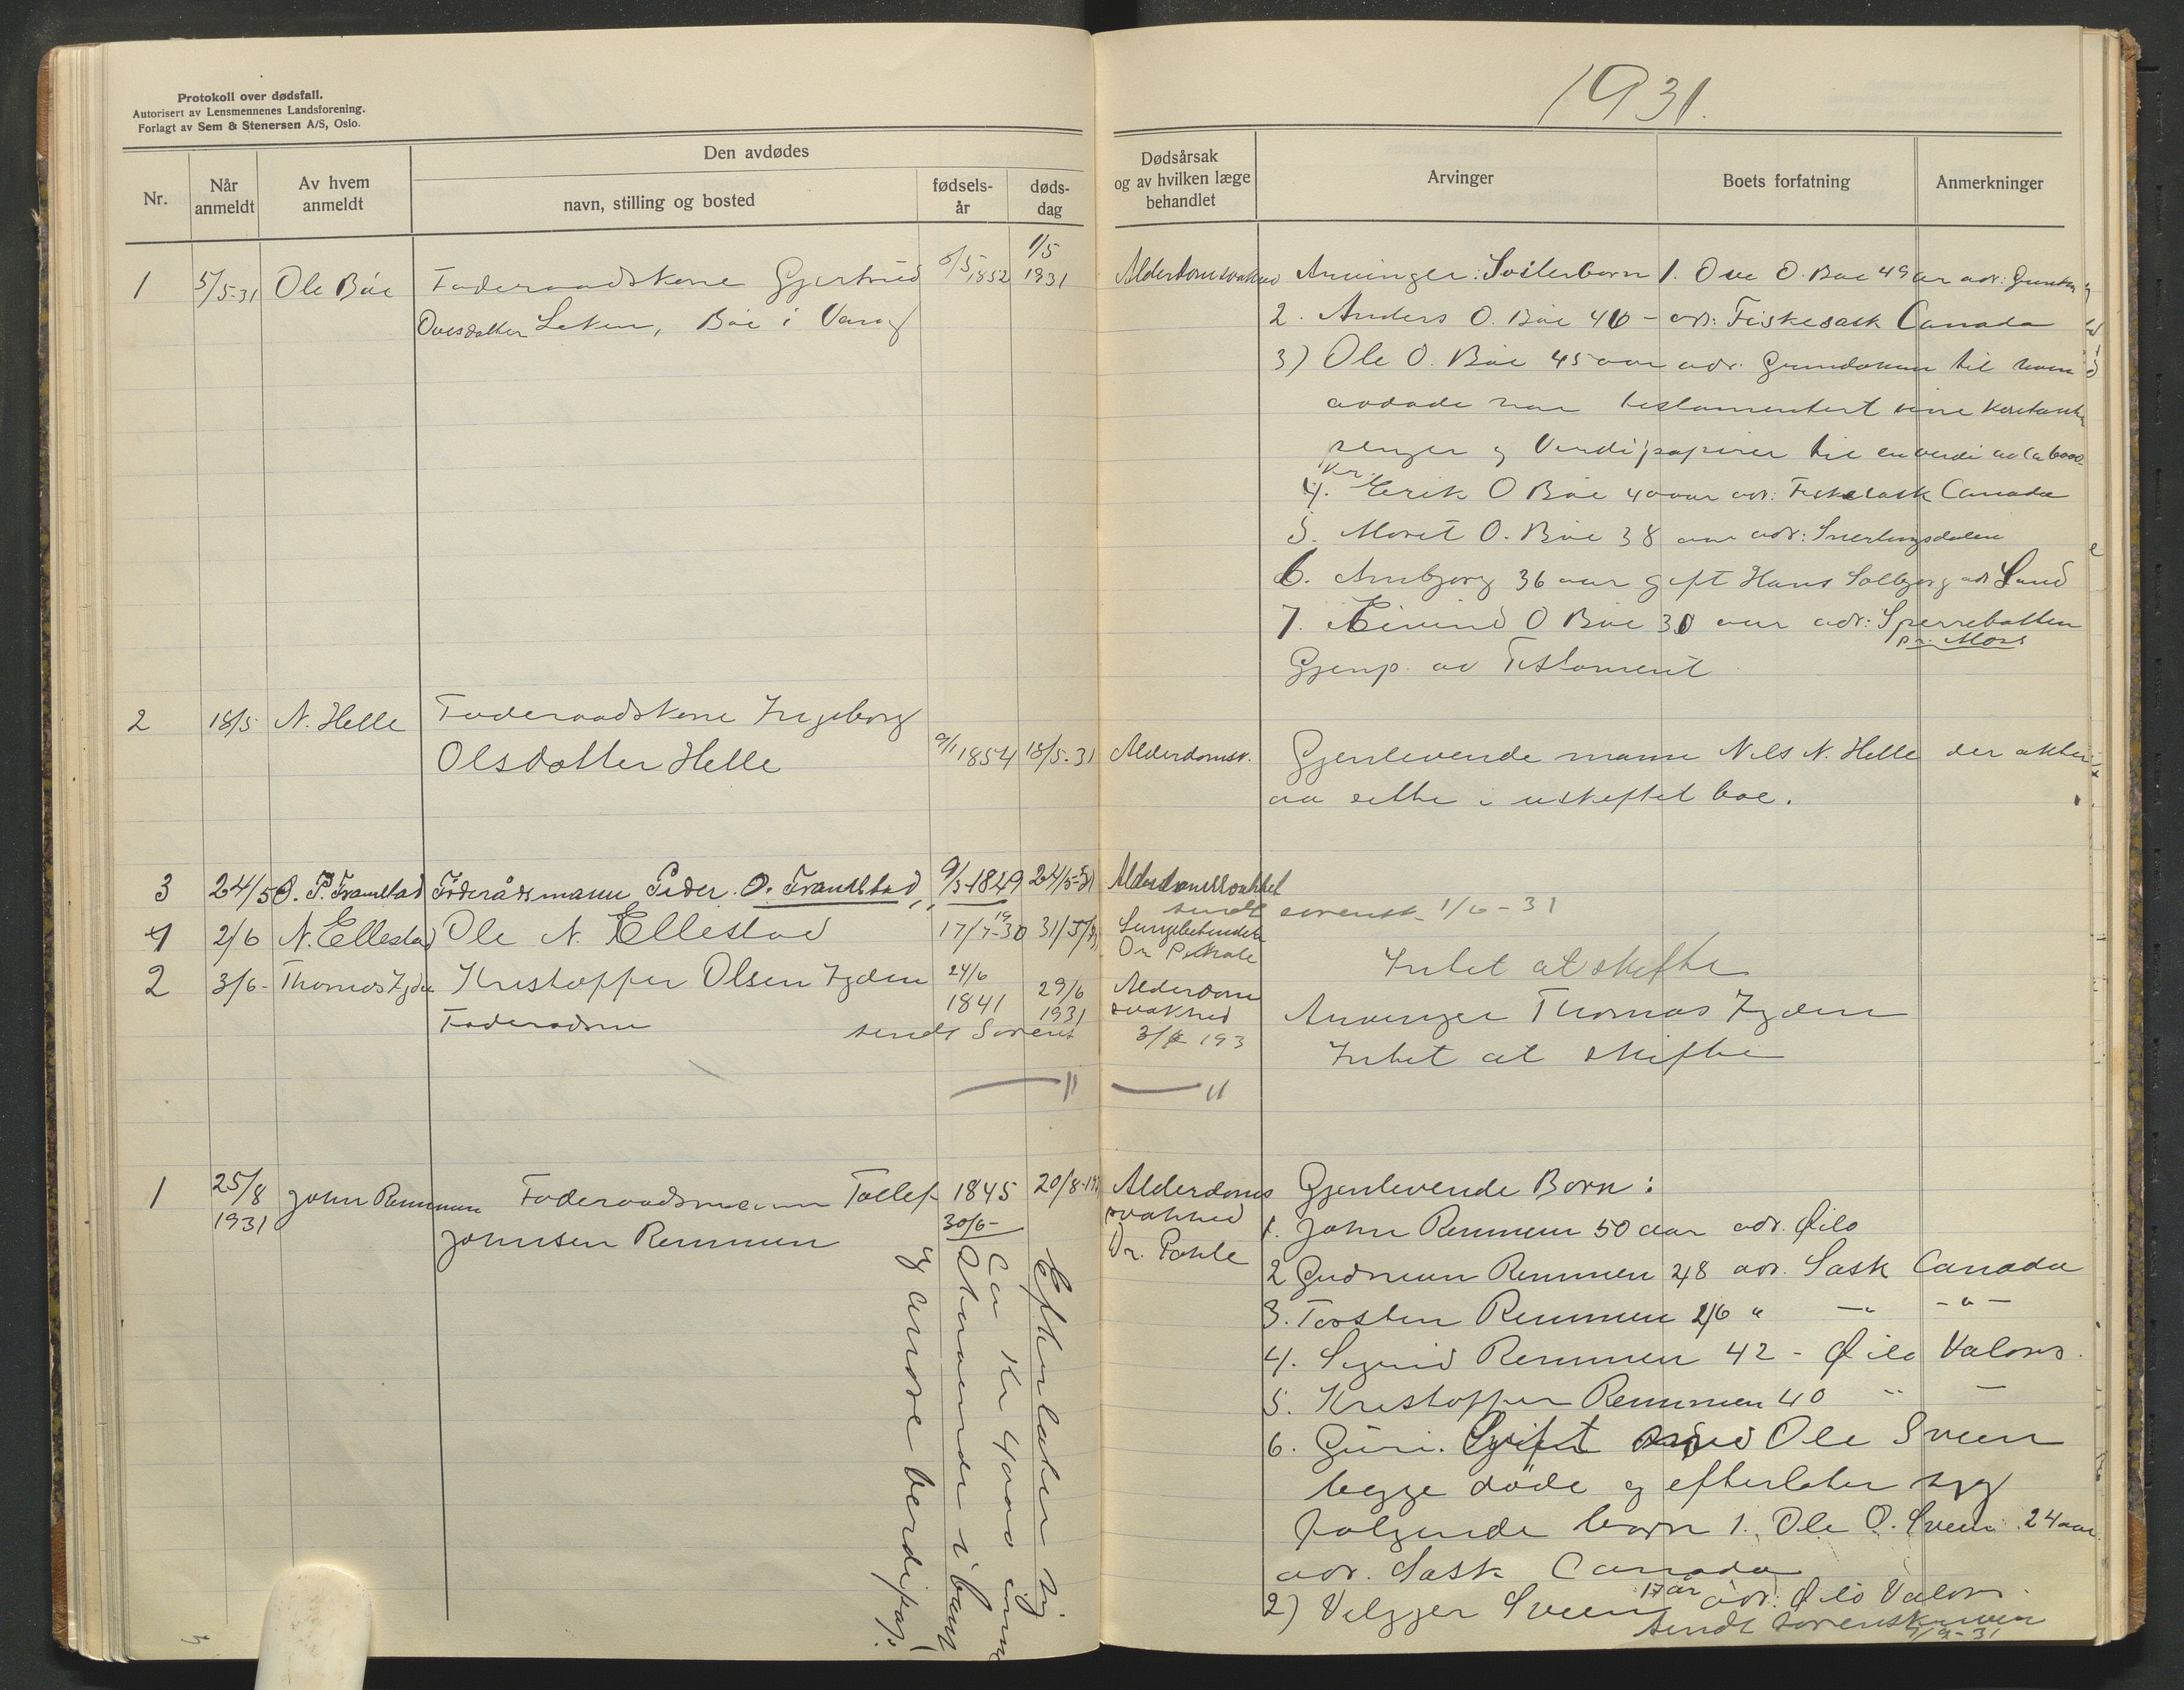 Protokoll over dødsfall.
Autorisert av Lensmennenes Landsforening.
Forlagt av Sem & Stenersen A/S, Oslo.
1931.
Nr.
Når anmeldt
Av hvem anmeldt
Den avdødes
navn, stilling og bosted
fødsels-år
døds-dag
Dødsårsak og av hvilken læge behandlet
Arvinger
Boets forfatning
Anmerkninger
1 5/5-31 Ole Böe Foderaadskone Gjertrud 1852 1/5 1931 Alderdomssvakhed
Ovesdatter Leken, Böe i Vang
Arvinger: Søsterbørn 1. Ove O. Böe 49 aar adr:
2. Anders O. Böe 46 - adr: Fiskesask Canada
3) Ole O. Böe 45 aar adr. til hvem
avdøde har testamentert sine
penger og Verdipapirer til en verdi av ca 6000
kr.
4. Erik O Böe 40 aar adr: Fiskesask Canada
5. Marit O. Böe 38 aar adr: Snertingsdalen
6. Annbjørg 36 aar gift Hans Solbjørg adr Land
7. Eivind O Böe 30 aar adr: Sperrebotten
pr. Moss
Gjenp. av Testament
2 18/5 N. Helle Foderaadskone Ingeborg
Olsdatter Helle 9/1 1854 18/5-31 Alderdomsv.
Gjenlevende mann Nils N. Helle der akter
aa sitte i uskiftet boe.
3 24/5 O. P. Framstad Föderådsmann Peder O. Framstad 9/3-1849 24/5-31 Alderdomssvakhet
sendt sorensk. 1/6-31
4 2/6 N. Ellestad Ole N. Ellestad 17/7-1930 31/5/31 Lungebetendelse
Dr Pahle
Intet at skifte
2 3/6- Thomas Ygden Kristoffer Olsen Ygden 24/6 1841 29/6 1931 Alderdomssvakhed
Foderadsm
sendt Sorensk 3/6 193
Arvinger Thomas Ygden
Intet at skifte
1 25/8 1931 John Remmen Foderaadsmann Tollef 1845 20/8-193 Alderdomssvakhed
Johnsen Remmen 30/6-
Dr. Pahle
Efterlater sig
ca Kr 4000 inne
staaende i bank
og andre verdipap:
Gjenlevende Born:
1. John Remmen 50 aar adr. Øilo
2 Gudmun Remmen 48 adr. Sask Canada
3. Torsten Remmen 46 " — " - " -
4. Sigrid Remmen 42 - Øilo Valdres.
5. Kristoffer Remmen 40 " —
6. Guri. Gift med Ole Sveen
begge døde og efterlater sig
følgende born 1. Ole O. Sveen 24 aar.
adr. Sask Canada
2) Sveen 17 år adr: Øilo Valdres
Sendt sorenskriveren
/9-31